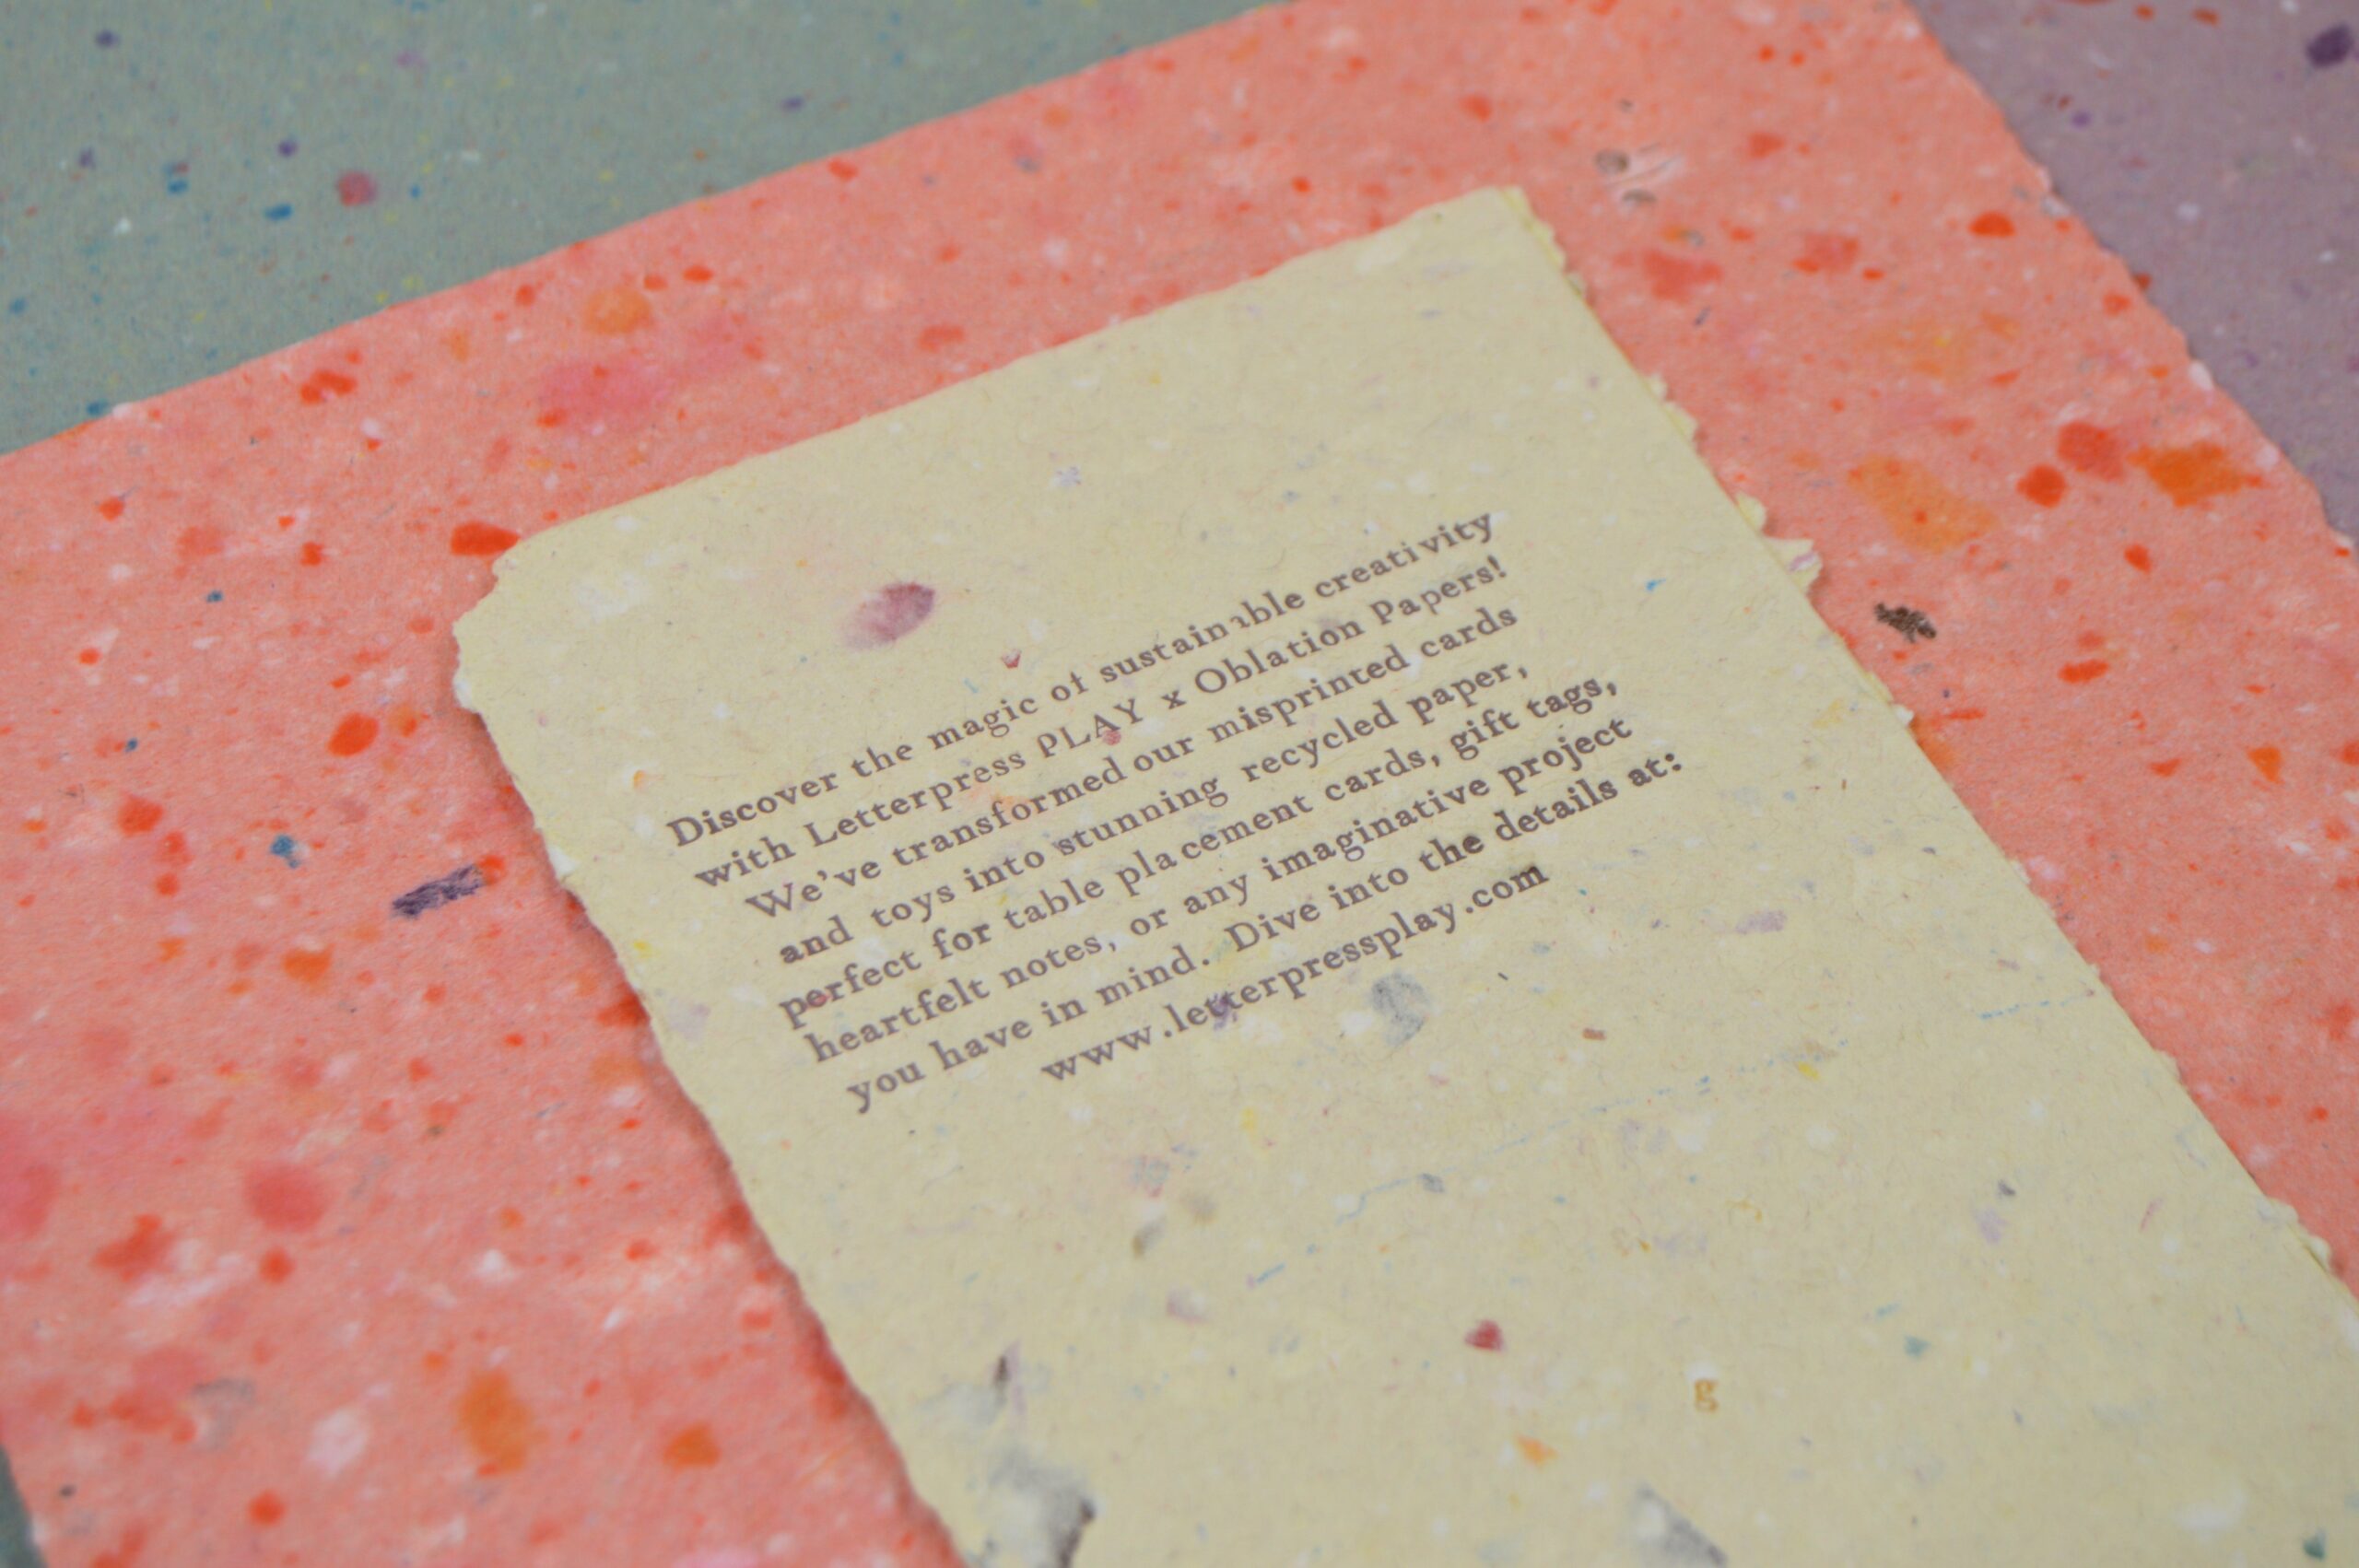 Discover the magic of sustainıble creativity
with Letterpress PLAY x Oblation Papers!
We've transformed our misprinted cards
and toys into stunning recycled paper,
perfect for table placement cards, gift tags,
heartfelt notes, or any imaginative project
you have in mind. Dive into the details at:
www.letterpressplay.com
g